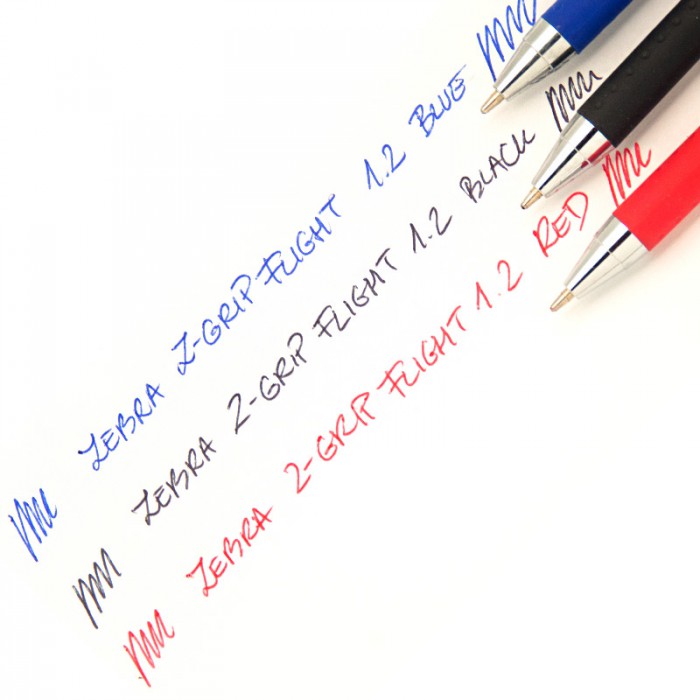 ZEBRA Z-GRIP FLIGHT 1.2 BLUE
ZEBRA Z-GRIP FLIGHT 1.2 BLACK
ZEBRA Z-GRIP FLIGHT 1.2 RED